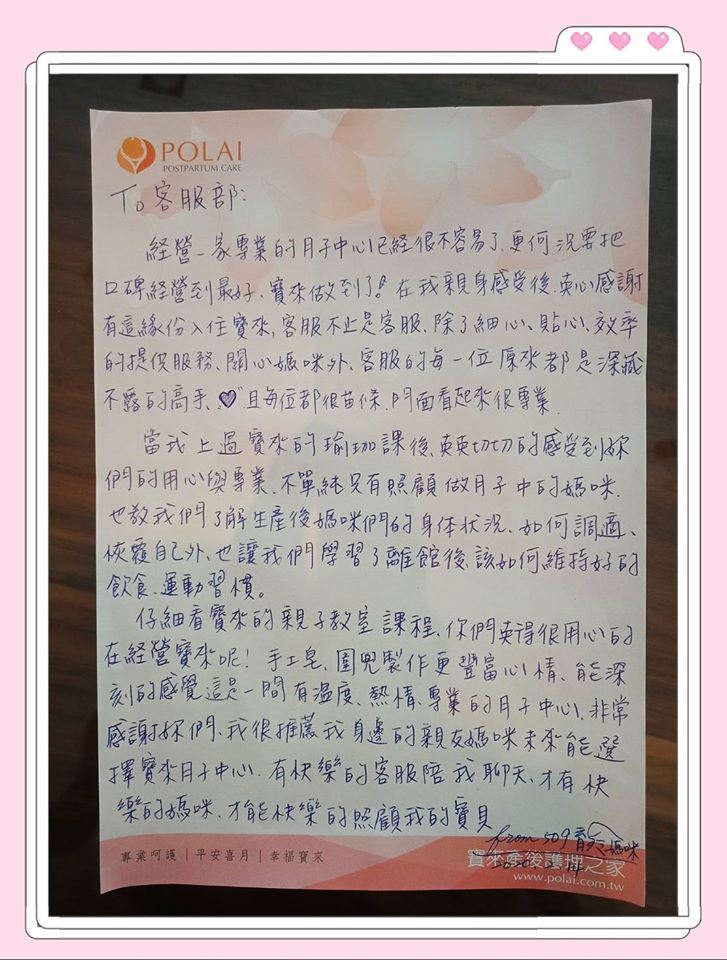 POLAI
POSTPARTUM CARE
To 客服部:
経營一家專業的月子中心已経很不容易了,更何況要把
口碑経營到最好、寶來做到了!在我親身感受後、真心感謝
有這緣份入住寶來,客服不止是客服、除了細心、貼心、效率
的提供服務、關心媽咪外、客服的每一位原來都是深藏
不露的高手、♡且每位都很苗條、門面看起來很專業.
當我上過寶來的瑜珈課後、真真切切的感受到妳
們的用心與專業、不單純只有照顧做月子中的媽咪.
也教我們了解生產後媽咪們的身体狀況、如何調適、
恢覆自己外、也讓我們學習了離館後、該如何維持好的
飲食、運動習慣。
仔細看寶來的親子教室課程、你們真得很用心的
在経營寶來呢!手工皂、圍兜製作更豐富心情、能深
刻的感覺這是一間有溫度、熱情、專業的月子中心、非常
感謝妳們、我很推薦我身邊的親友媽咪未來能選
擇寶來月子中心、有快樂的客服陪我聊天、才有快
樂的媽咪、才能快樂的照顧我的寶貝
from 509 媽咪
專業呵護|平安喜月|幸福寶來
寶來產後護理之家
www.polai.com.tw